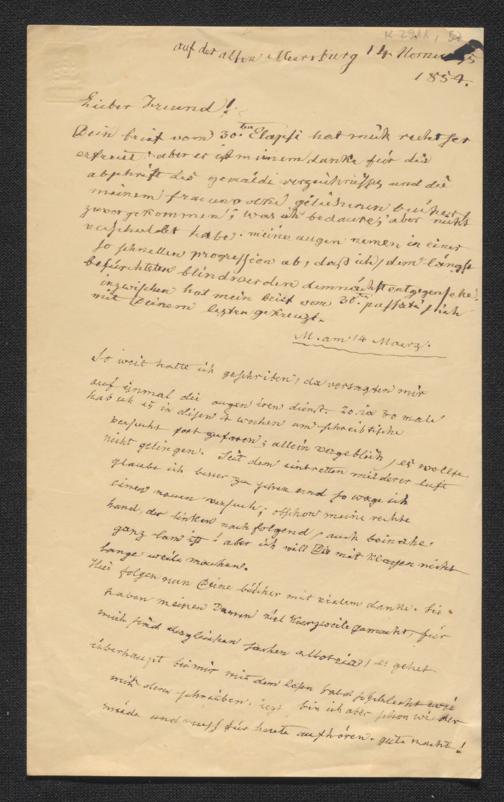 K 2911,
auf der alten Meersburg 14 Hornung
1854.
Lieber Freund!
Dein brief vom 30. ten Elapsi hat mich recht ser
erfreut; aber er ist meinem danke für die
abschrift des gemälde verzeichnisses und die
meinem frauenvolke geliehenen bücher
zuvorgekommen; was ich bedaure, aber nicht
verschuldet habe. meine augen nemen in einer
so schnellen progression ab, daß ich dem längst
befürchteten blindwerden demnächst entgegensehe.
inzwischen hat mein brief vom 30. passati sich
mit Deinem lezten gekreuzt.
M. am 14 Maerz.
So weit hatte ich geschriben, da versagten mir
auf einmal die augen iren dienst. 20. ia 30 male
hab ich es in disen 4 wochen am schreibtische
versucht fort zufaren; allein vergeblich, es wollte
nicht gelingen. Seit dem eintretten milderer luft
glaube ich besser zu sehen und so wage ich
einen neuen versuch; obschon meine rechte
hand der linken nach folgend, auch beinahe
ganz lam ist. aber ich will Dir mit klagen nicht
lange weile machen.
Hier folgen nun Deine bücher mit vielem danke. Sie
haben meinen Damen viel kurzweile gemacht, für
mich sind dergleichen sachen allotria, es gehet
überhaupt bei mir mit dem lesen bald so schlecht wie
mit dem schreiben. iezt bin ich aber schon wider
müde und muß für heute aufhören. gute nacht!